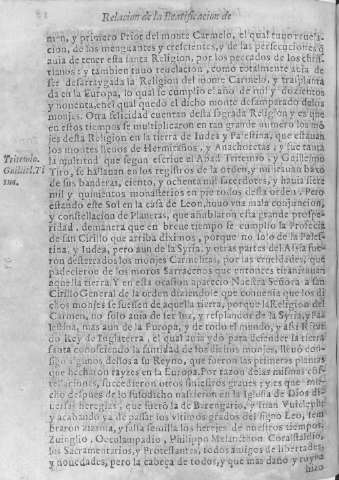 Relacion de la Beatificacion de
men, y primero Prior del monte Carmelo, el qual tuuo reuela-
cion, de los menguantes y crescientes, y de las persecuciones q̃
auia de tener esta santa Religion, por los peccados de los chris-
tianos: y tambien tuuo reuelacion, como totalmente auia de
ser desarraygada la Religion del monte Carmelo, y trasplanta
da en la Europa, lo qual se cumplio el año de mil y dozientos
y nouenta, en el qual quedo el dicho monte desamparado de los
monjes. Otra felicidad cuentan desta sagrada Religion y es que
en estos tiempos se multiplicaron en tan grande numero los mō
jes desta Religion en la tierra de Iudea y Palestina, que estauan
los montes llenos de Hermitaños, y Anachoretas: y fue tanta
Tritemio. la multitud que segun escriue el Abad Tritemio, y Guillermo
Guillel. Ti Tiro, se hallauan en los registros de la orden, y militauan baxo
rius. de sus banderas, ciento, y ochenta mil Sacerdotes, y hasta siete
mil y quinientos monasterios en per todos desta orden. Pero
estando este Sol en la casa de Leon, huuo vna mala conjuncion,
y constellacion de Planetas, que anublaron esta grande prospe-
ridad, demanera que en breue tiempo se cumplio la Profecia
de san Cirillo que arriba diximos, porque no solo de la Pales-
tina, y Iudea, pero aun de la Syria, y otras partes del Assia fue-
ron desterrados los monjes Carmelitas, por las crueldades, que
padecieron de los moros Sarracenos que entonces tiranizauan
aquella tierra. Y en esta ocasion aparecio Nuestra Señora a san
Cirillo General de la orden diziendole que conuenia que los di
chos monjes se fuessen de aquella tierra, porque la Religion del
Carmen, no solo auia de ser luz, y resplandor de la Syria, y Pa
lestina, mas aun de la Europa, y de todo el mundo, y assi Ricar
do Rey de Inglaterra, el qual auia ydo para defender la tierra
santa conosciendo la santidad de los dichos monjes, lleuò con-
sigo algunos dellos a su Reyno, que fueron las primeras plantas
que hecharon rayzes en la Europa. Por razon de las mismas cōs
tellaciones, succedieron otros siniestros graues: y es que mu-
cho despues de lo susodicho nascieron en la Iglesia de Dios di-
uersas heregias, que fuerō la de Berengario, y Iuan Vuicleph:
y acabando ya de passar los vltimos grados del signo Leo, sem
braron zizania, y falsa semilla los herejes de nuestros tiempos,
Zuinglio, Occulampadio, Philippo Melancthon Coralstadio,
los Sacramentarios, y Protestantes, todos amigos de libertades,
y nouedades, pero la cabeça de todos, y que mas daño y ruyna
hizo